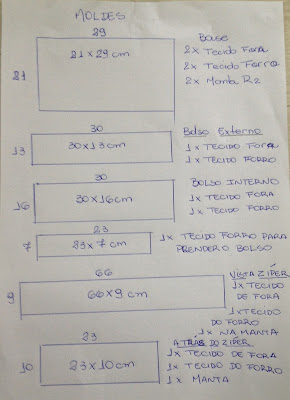 MOLDES
29
21
21 x 29 cm
Base
2x Tecido Fora
2x Tecido Forro
2x Manta R2
30
13
30x13cm
Bolso Externo
1x TECIDO FORA
1x TECIDO FORRO
30
16
30x16cm
BOLSO INTERNO
1x TECIDO FORA
1x TECIDO FORRO
23
7
23x7cm
1x TECIDO FORRO PARA
PRENDER O BOLSO
66
9
66x9cm
VISTA ZÍPER
1x TECIDO
DE FORA
1x TECIDO
DO FORRO
1x NA MANTA
23
10
23x10cm
ATRÁS DO ZÍPER
1x TECIDO DE FORA
1x TECIDO DO FORRO
1x MANTA